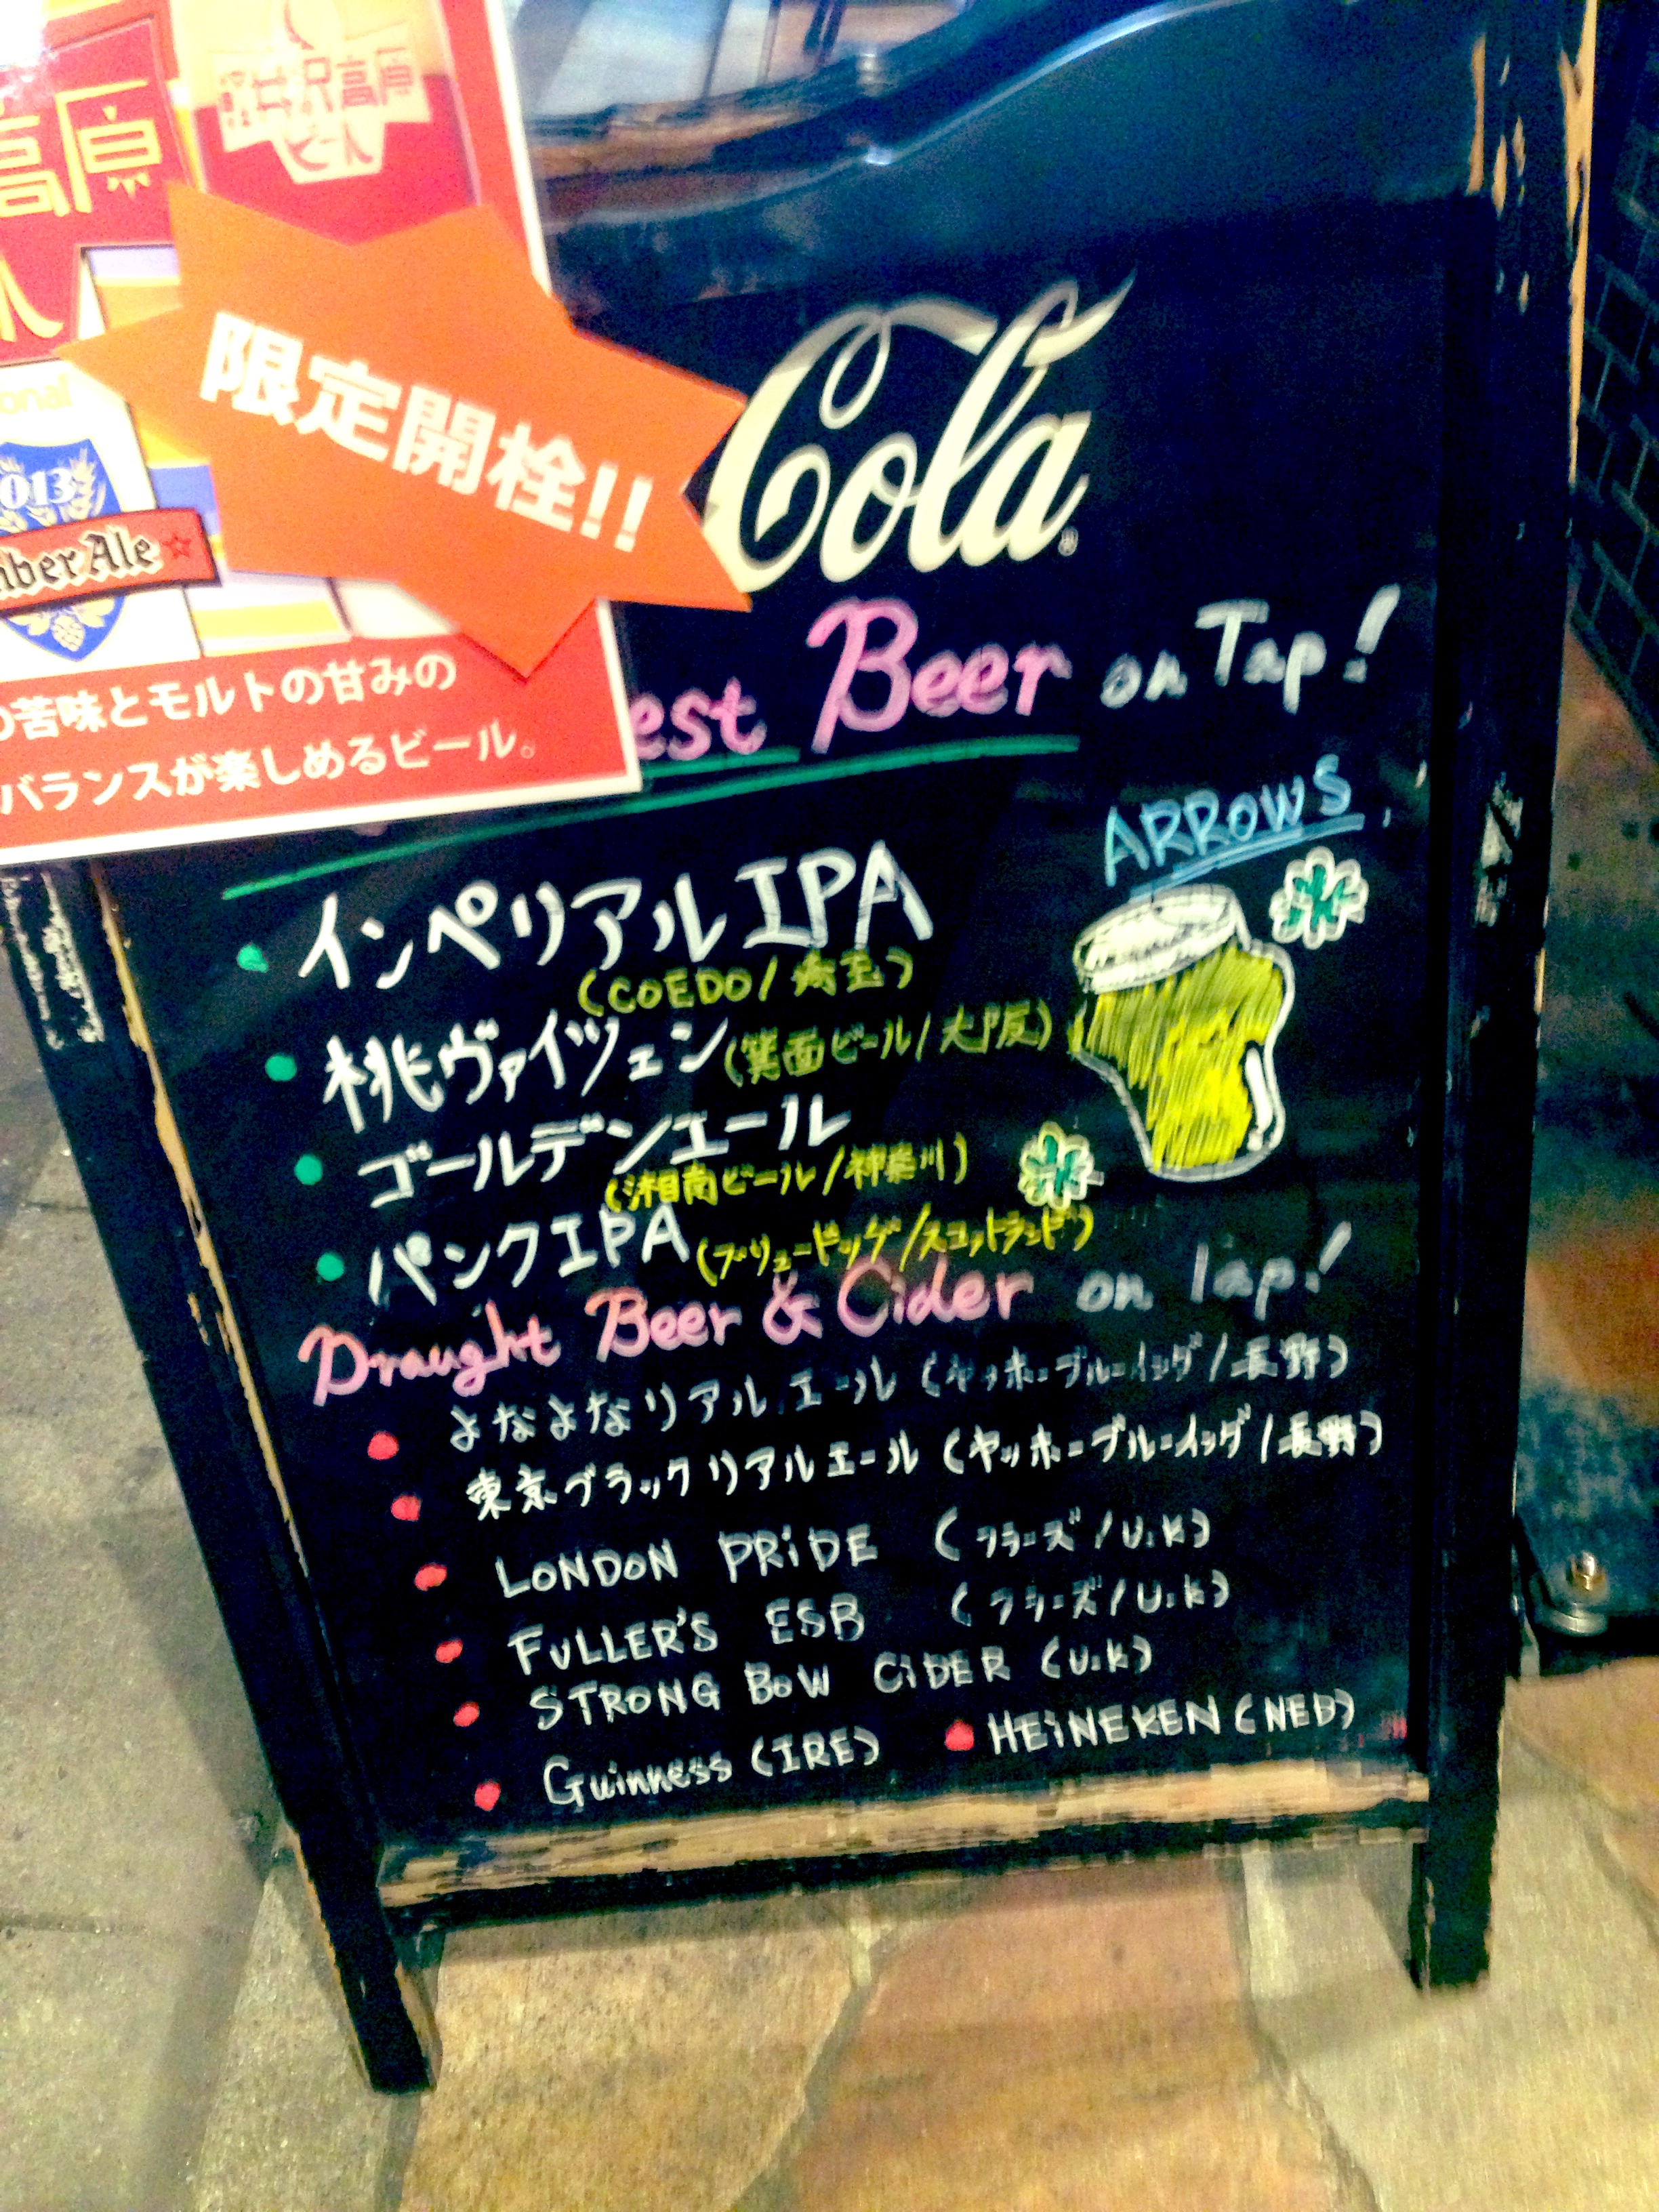 高原
軽井沢高原
ビール
限定開栓!!
Cola
onal
2013
mber Ale
の苦味とモルトの甘みの
バランスが楽しめるビール。
est Beer on Tap!
ARROWS
インペリアルIPA
(COEDO/埼玉)
桃ヴァイツェン(箕面ビール/大阪)
ゴールデンエール
(湘南ビール/神奈川)
パンクIPA(ブリュードッグ/スコットランド)
Draught Beer & Cider on Tap!
よなよなリアルエール (ヤッホーブルーイング/長野)
東京ブラックリアルエール (ヤッホーブルーイング/長野)
LONDON PRiDE (フラーズ/U.K)
FULLER'S ESB (フラーズ/U.K)
STRONG BOW CiDER (U.K)
Guinness (IRE) HEiNEKEN (NED)